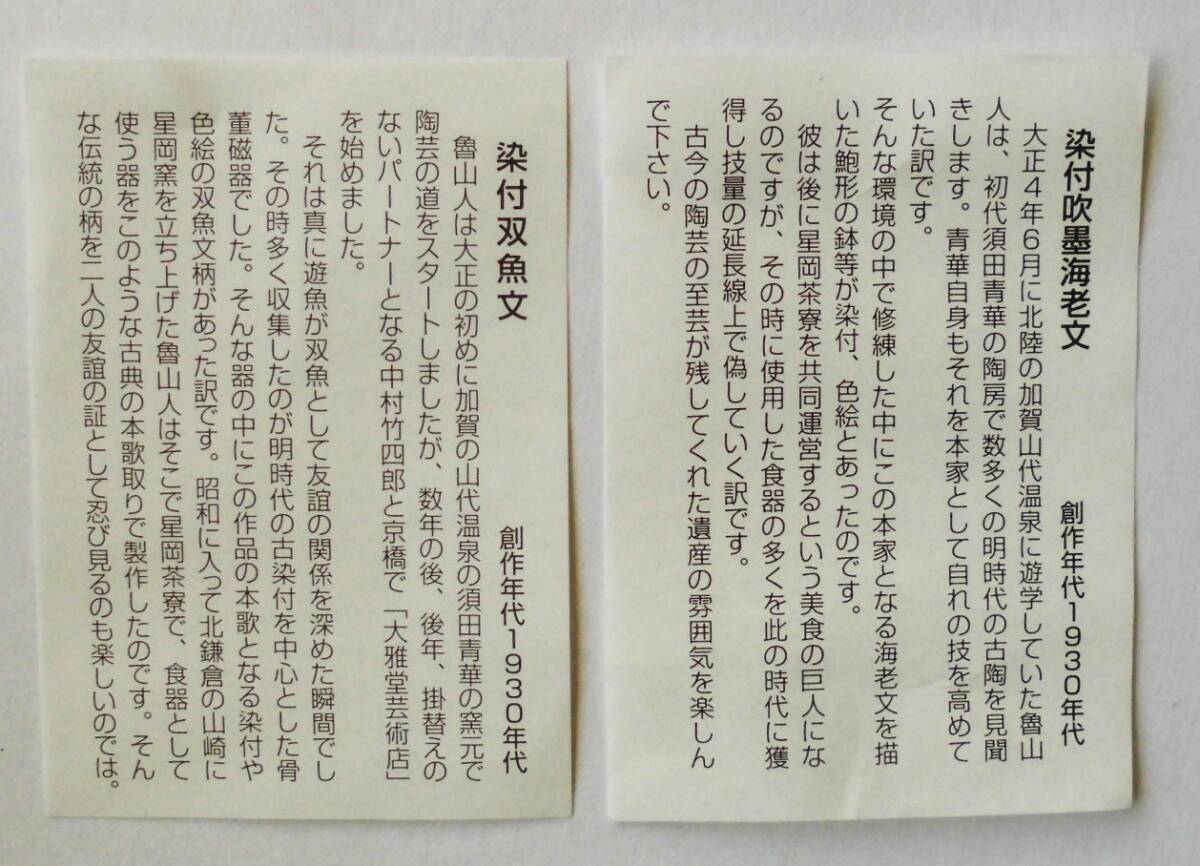 染付吹墨海老文　創作年代1930年代
大正4年6月に北陸の加賀山代温泉に遊学していた魯山
人は、初代須田青華の陶房で数多くの明時代の古陶を見聞
きします。青華自身もそれを本家として自れの技を高めて
いた訳です。
そんな環境の中で修練した中にこの本家となる海老文を描
いた鮑形の鉢等が染付、色絵とあったのです。
彼は後に星岡茶寮を共同運営するという美食の巨人にな
るのですが、その時に使用した食器の多くを此の時代に獲
得し技量の延長線上で偽していく訳です。
古今の陶芸の至芸が残してくれた遺産の雰囲気を楽しん
で下さい。
染付双魚文　創作年代1930年代
魯山人は大正の初めに加賀の山代温泉の須田青華の窯元で
陶芸の道をスタートしましたが、数年の後、後年、掛替えの
ないパートナーとなる中村竹四郎と京橋で「大雅堂芸術店」
を始めました。
それは真に遊魚が双魚として友誼の関係を深めた瞬間でし
た。その時多く収集したのが明時代の古染付を中心とした骨
董磁器でした。そんな器の中にこの作品の本歌となる染付や
色絵の双魚文柄があった訳です。昭和に入って北鎌倉の山崎に
星岡窯を立ち上げた魯山人はそこで星岡茶寮で、食器として
使う器をこのような古典の本歌取りで製作したのです。そん
な伝統の柄を二人の友誼の証として忍び見るのも楽しいのでは。